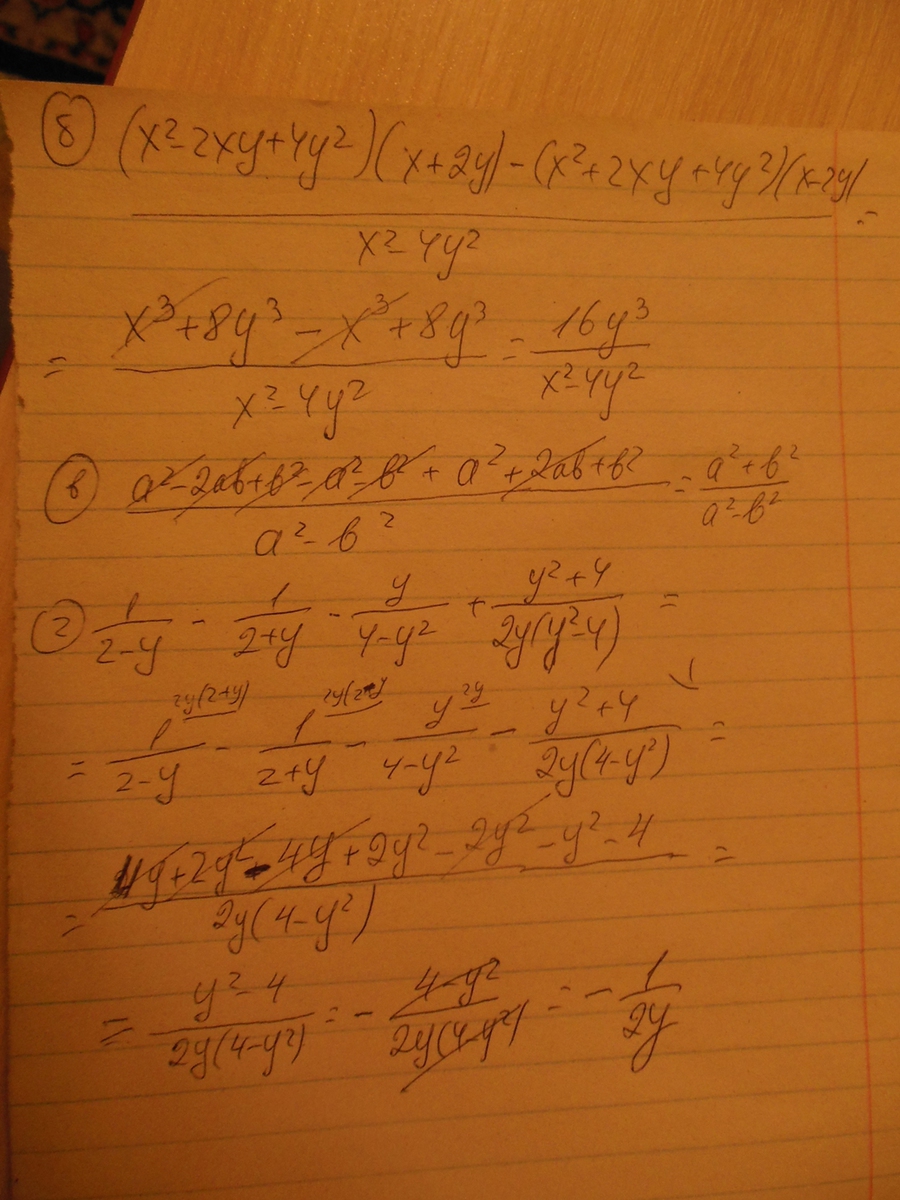 б) (x²-2xy+4y²)(x+2y)-(x²+2xy+4y²)(x-2y) / x²-4y² =
= x³+8y³-x³+8y³ / x²-4y² = 16y³ / x²-4y²
в) a²-2ab+b²-a²-b²+a²+2ab+b² / a²-b² = a²+b² / a²-b²
г) 1 / 2-y - 1 / 2+y - y / 4-y² + y²+4 / 2y(y²-4) =
2y(2+y) 2y(2-y) 2y 1
= 1 / 2-y - 1 / 2+y - y / 4-y² - y²+4 / 2y(4-y²) =
= 4y+2y²-4y+2y²-2y²-y²-4 / 2y(4-y²) =
= y²-4 / 2y(4-y²) = - 4-y² / 2y(4-y²) = - 1 / 2y